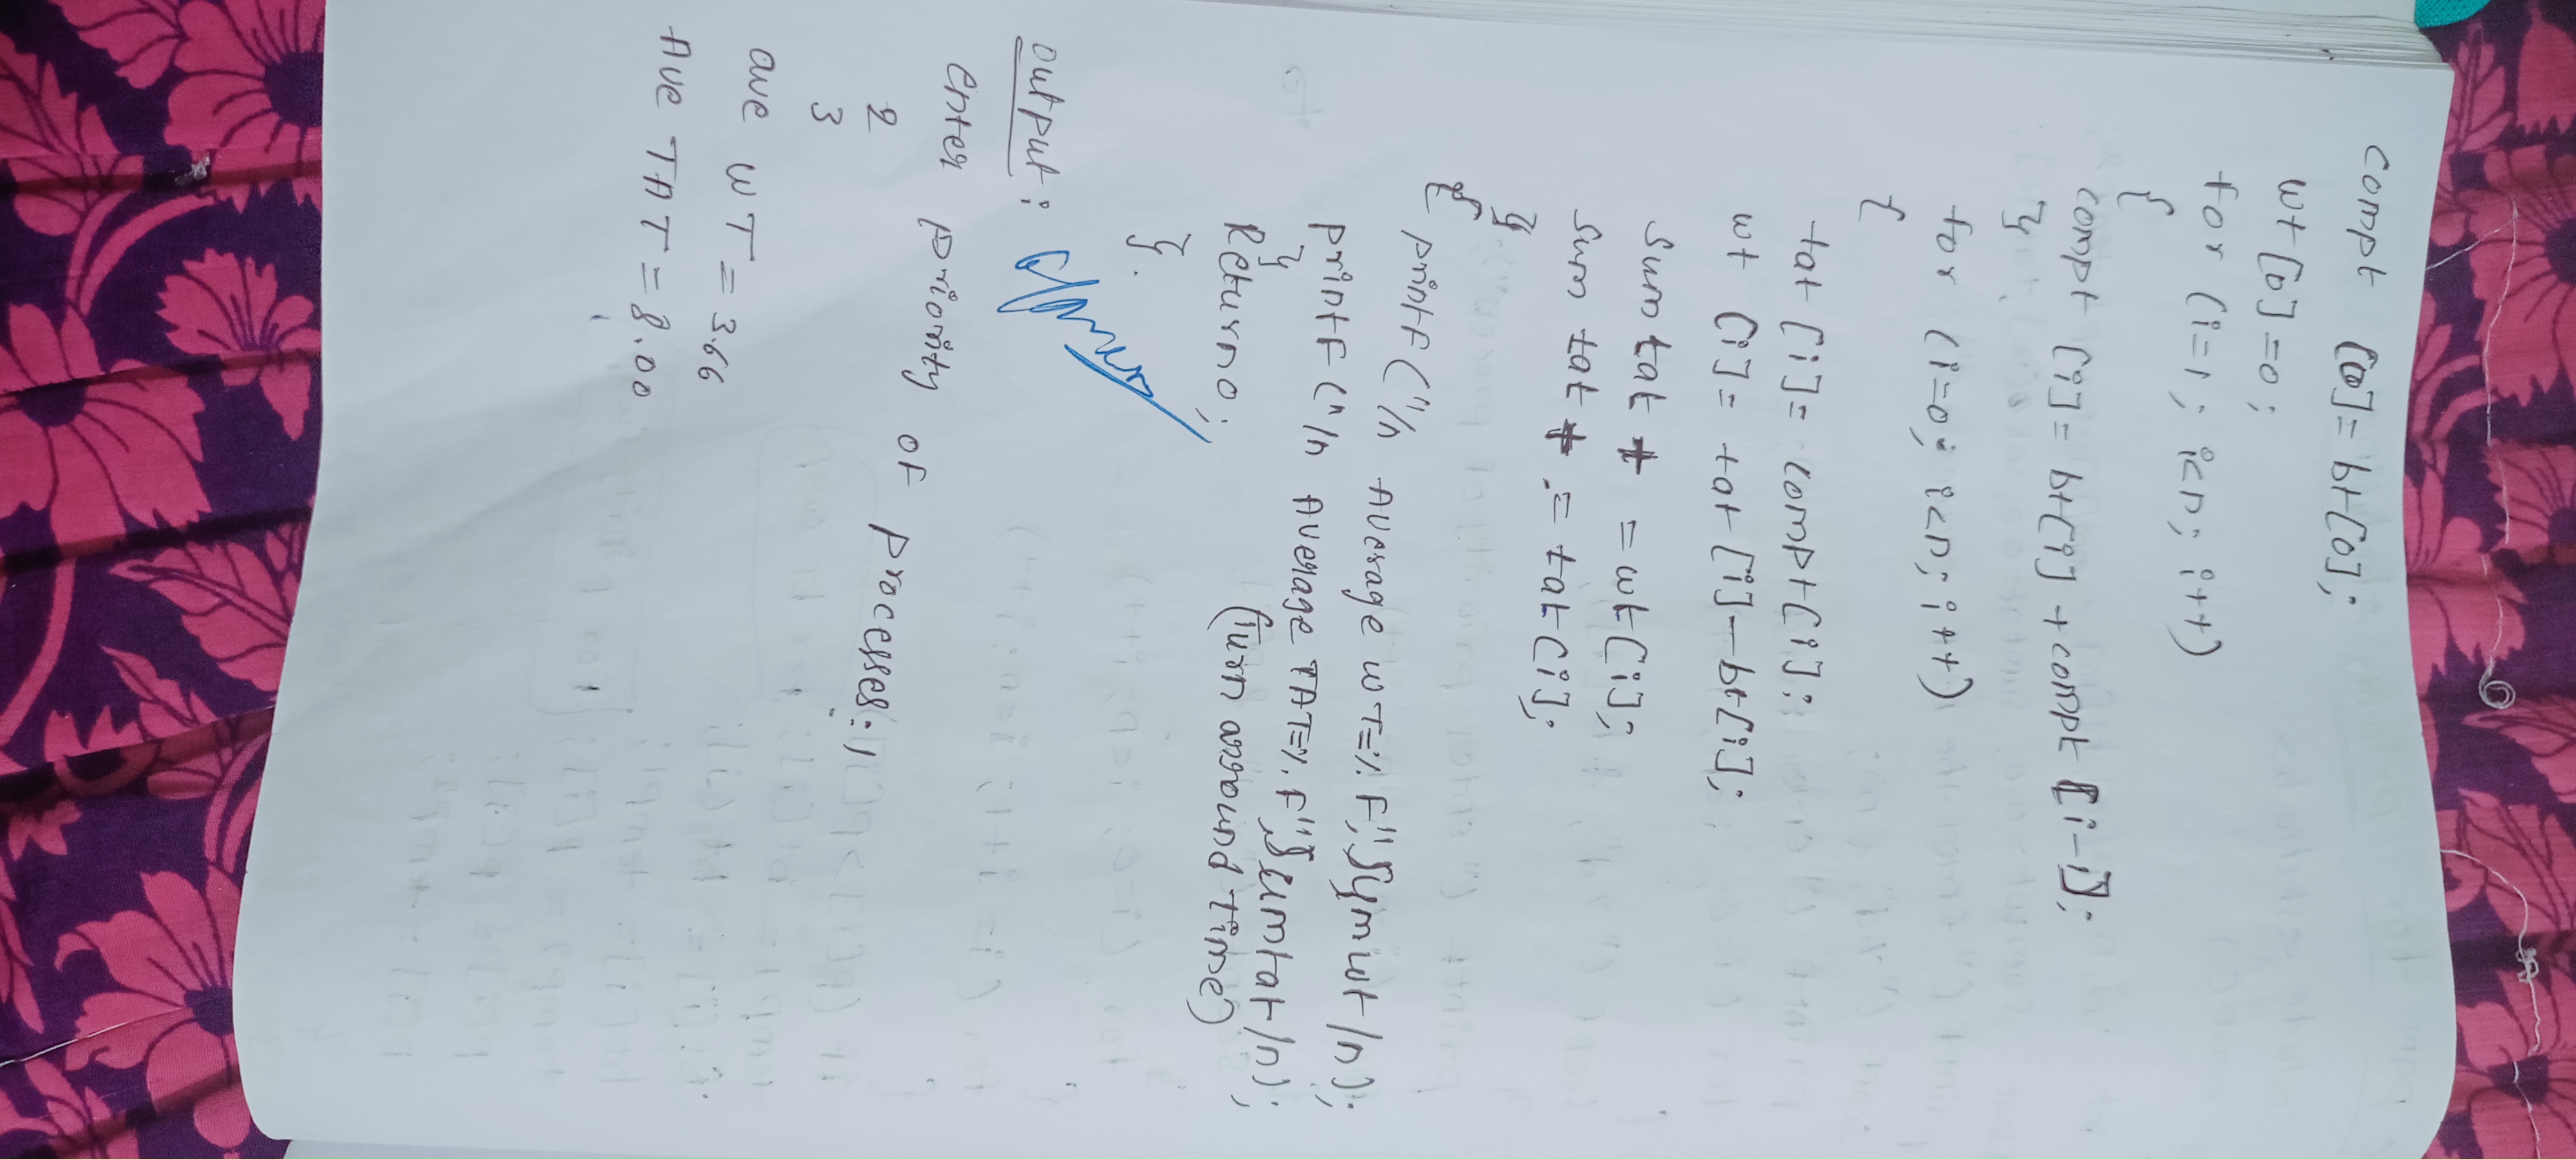 compt [0]= bt[0];
wt[0]=0;
for (i=1; i<n; i++)
{
compt [i]= bt[i] + compt [i-1];
}
for (i=0; i<n; i++)
{
tat [i]= compt[i];
wt [i]= tat [i]-bt[i];
sum tat + = wt[i];
sum tat + = tat[i];
}
printf("/n Average WT=%.F",Sumwt/n);
printF("/n Average TAT=%.F",Sumtat/n);
}
Return0; (Turn around time)
}.
output:
enter priority of processes:1
2
3
ave WT = 3.66
Ave TAT = 8.00